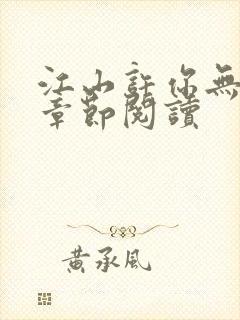 江山許你無
章節閱讀
黃承風